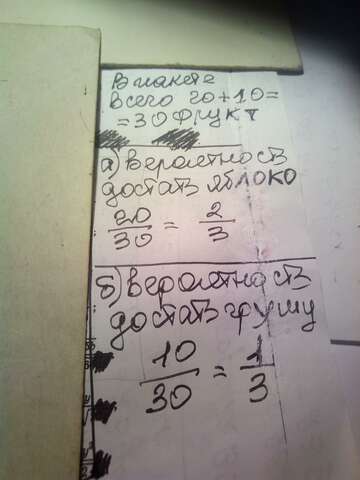 В пакете
всего 20+10=
=30 фрукт
а) вероятность
достать яблоко
20/30 = 2/3
б) вероятность
достать грушу
10/30 = 1/3